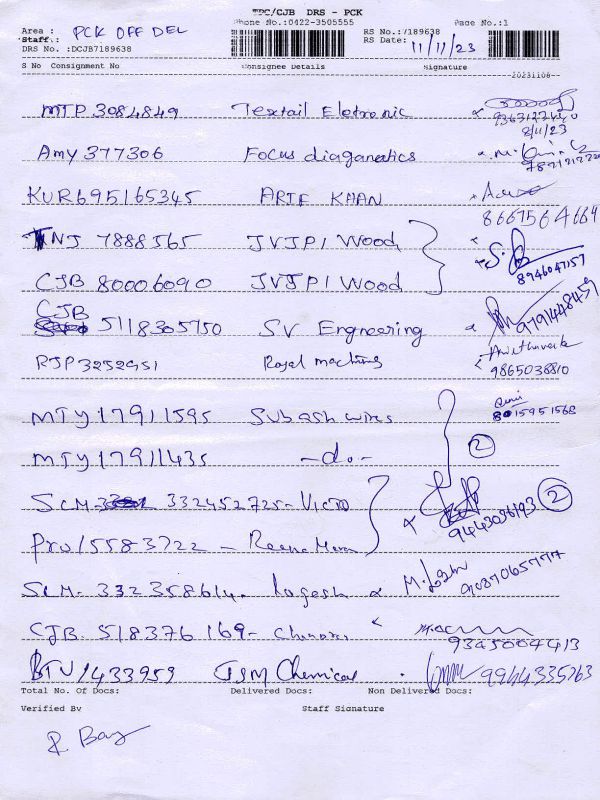 TPC/CJB DRS - PCK
Phone No.:0422-3505555 Page No.:1
Area : PCK OFF DEL RS No.:/189638
Staff.: RS Date: 11/11/23
DRS No. :DCJB7189638
S No Consignment No Consignee Details Signature
20231108
MTP 3084849 Textail Eletronic
8/11/23
Amy 377306 Focus diaganeatics
KUR695165345 ARIF KHAN
8667564664
TNJ 7888565 JVJPI Wood
8946047157
CJB 80006090 JVJPI Wood
CJB 5118305750 SV Engneering 9791448459
RJP3252951 Royal machines
9865038810
MTY17911595 Subash wires 8015951568
MTY17911435 -do- 2
SCM- 332452725- 2
9443036193
PRV15583722 - Reena
SCM- 332358614- Logesh 9087065777
CJB 518376169-
9345004413
BTV1433959 GSM Chemical 9964335263
Total No. Of Docs: Delivered Docs: Non Delivered Docs:
Verified By Staff Signature